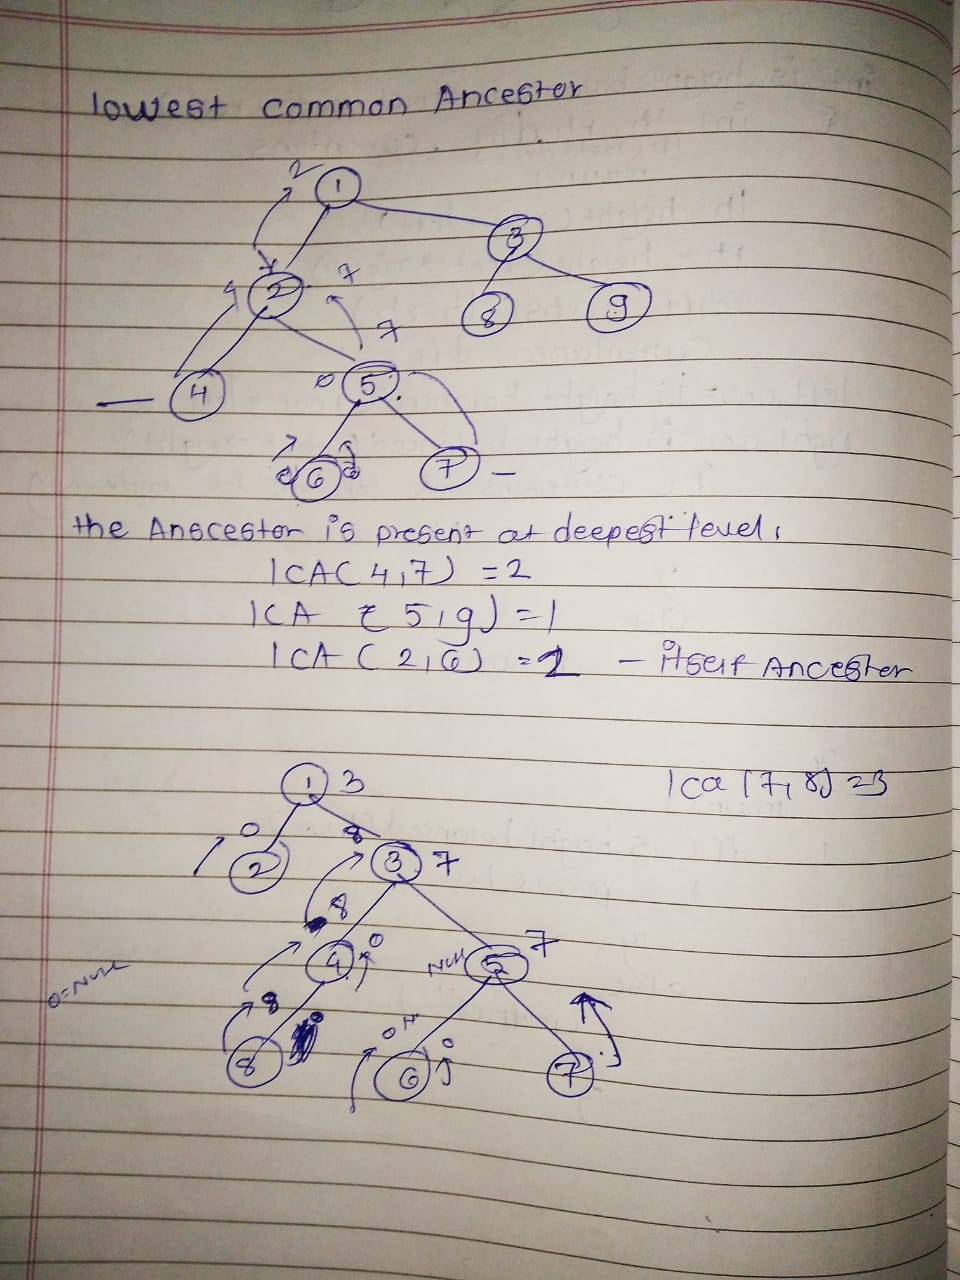 lowest common Ancester
2
1
3
4
2
7
8
9
7
4
0
5
6
7
the Anscestor is present at deepest level.
lCA( 4,7) = 2
lCA ( 5,9) = 1
lCA ( 2,6) = 2 - itself Ancester
1 3
lca (7, 8) = 3
0
8
2
3 7
8
0
7
4
Null
5
0 = Null
8
0
0
8
6
7